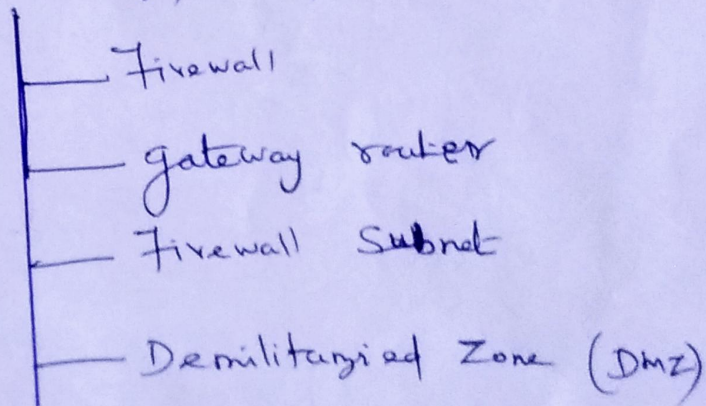 Firewall
gateway router
Firewall Subnet
Demilitarized Zone (DMZ)